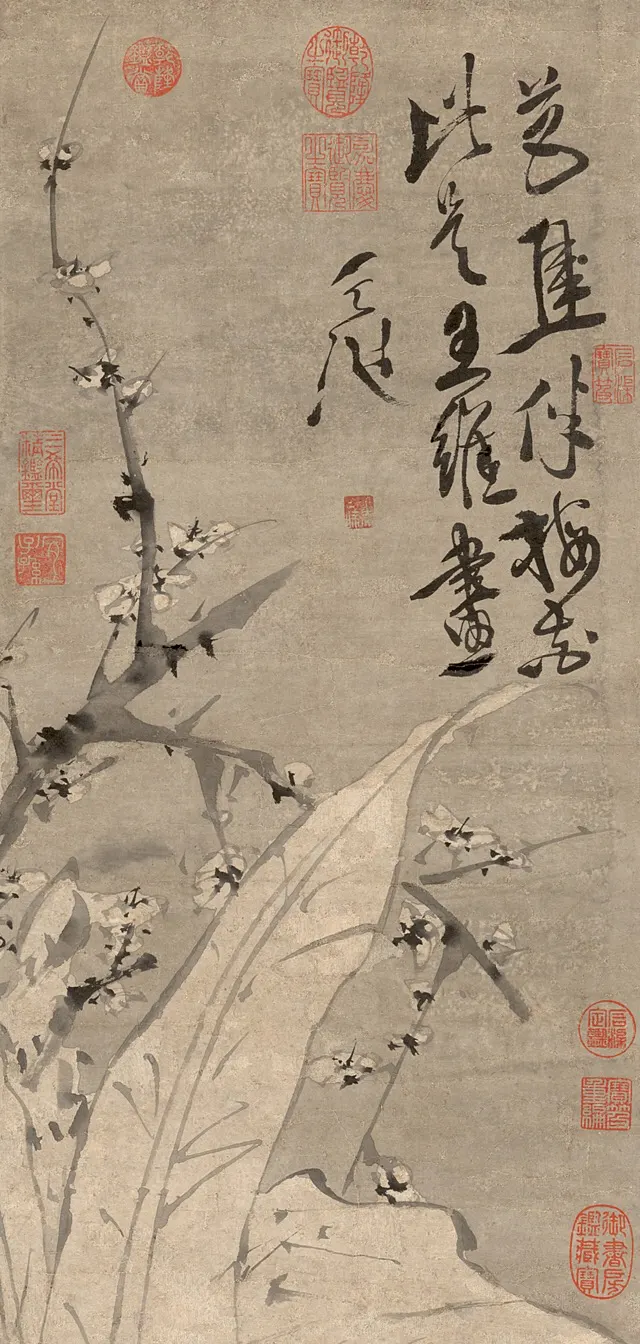 芭蕉伴梅花
此是王維畫
天池
乾隆御覽之寶
嘉慶御覽之寶
乾隆鑑賞
石渠寶笈
三希堂精鑑璽
宜子孫
石渠定鑑
寶笈重編
御書房鑑藏寶